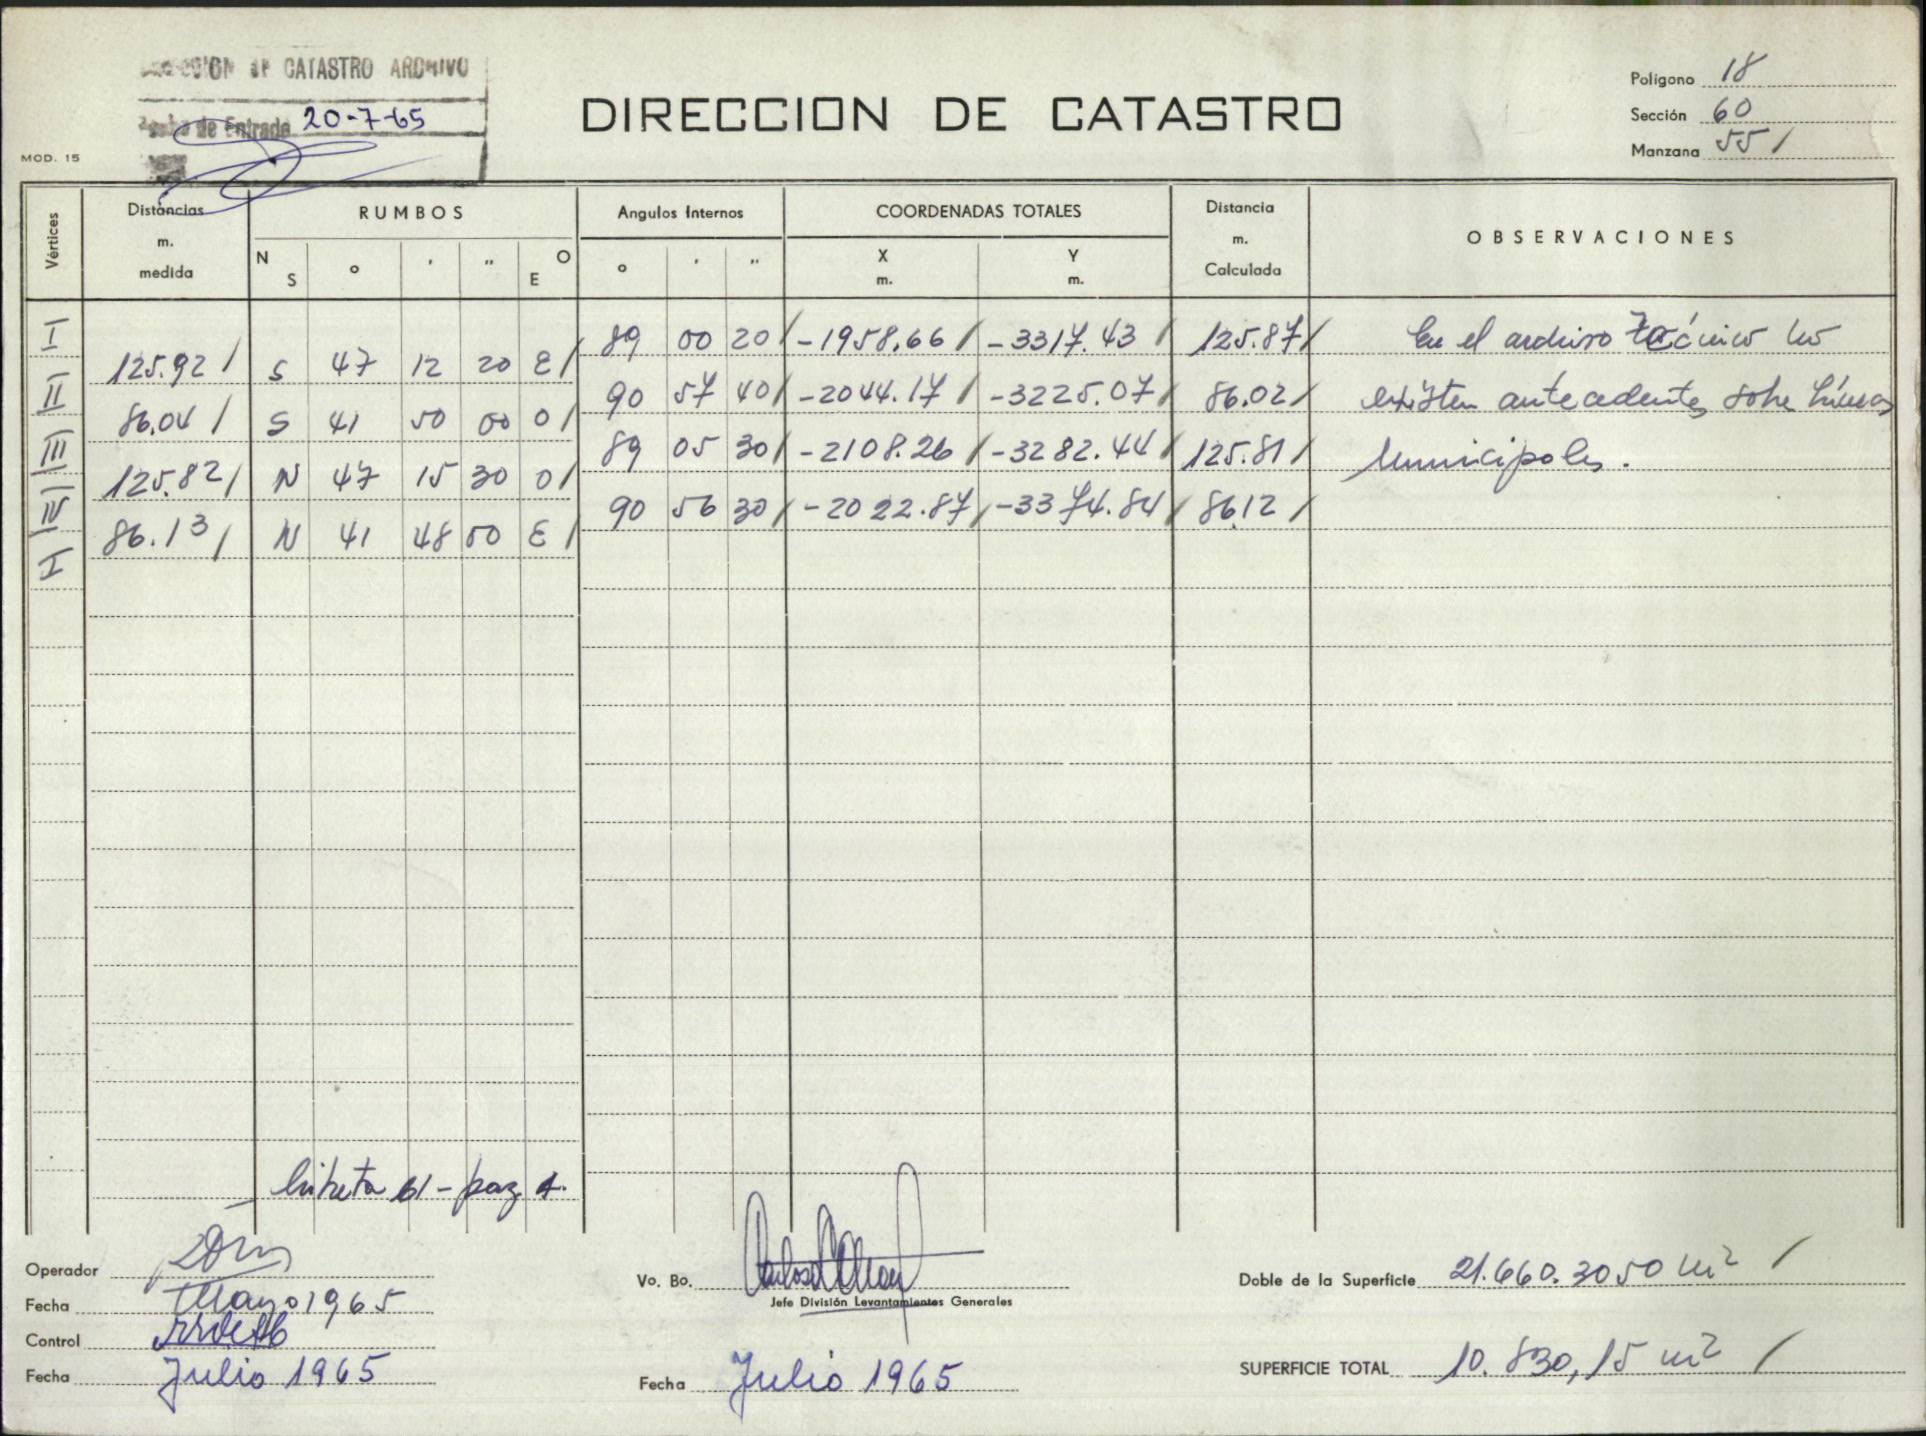 CATASTRO ARCHIVO
de Entrada 20-7-65
DIRECCION DE CATASTRO
Polígono 18
Sección 60
Manzana 551
MOD. 15
Vértices Distáncias m. medida RUMBOS Angulos Internos COORDENADAS TOTALES Distancia m. Calculada OBSERVACIONES
N S ° ' '' O E ° ' '' X m. Y m.
I 89 00 20 -1958.66 -3317.43 125.87 En el archivo Técnico no
125.92 S 47 12 20 E
II 90 57 40 -2044.17 -3225.07 86.02 existen antecedentes sobre líneas
86.04 S 41 50 00 O
III 89 05 30 -2108.26 -3282.44 125.81 Municipales.
125.82 N 47 15 30 O
IV 90 56 30 -2022.87 -3374.84 86.12
86.13 N 41 48 50 E
I
libreta 61 - pag 4.
Operador
Fecha Mayo 1965
Control
Fecha Julio 1965
Vo. Bo.
Jefe División Levantamientos Generales
Fecha Julio 1965
Doble de la Superficie 21.660.3050 m2
SUPERFICIE TOTAL 10.830,15 m2